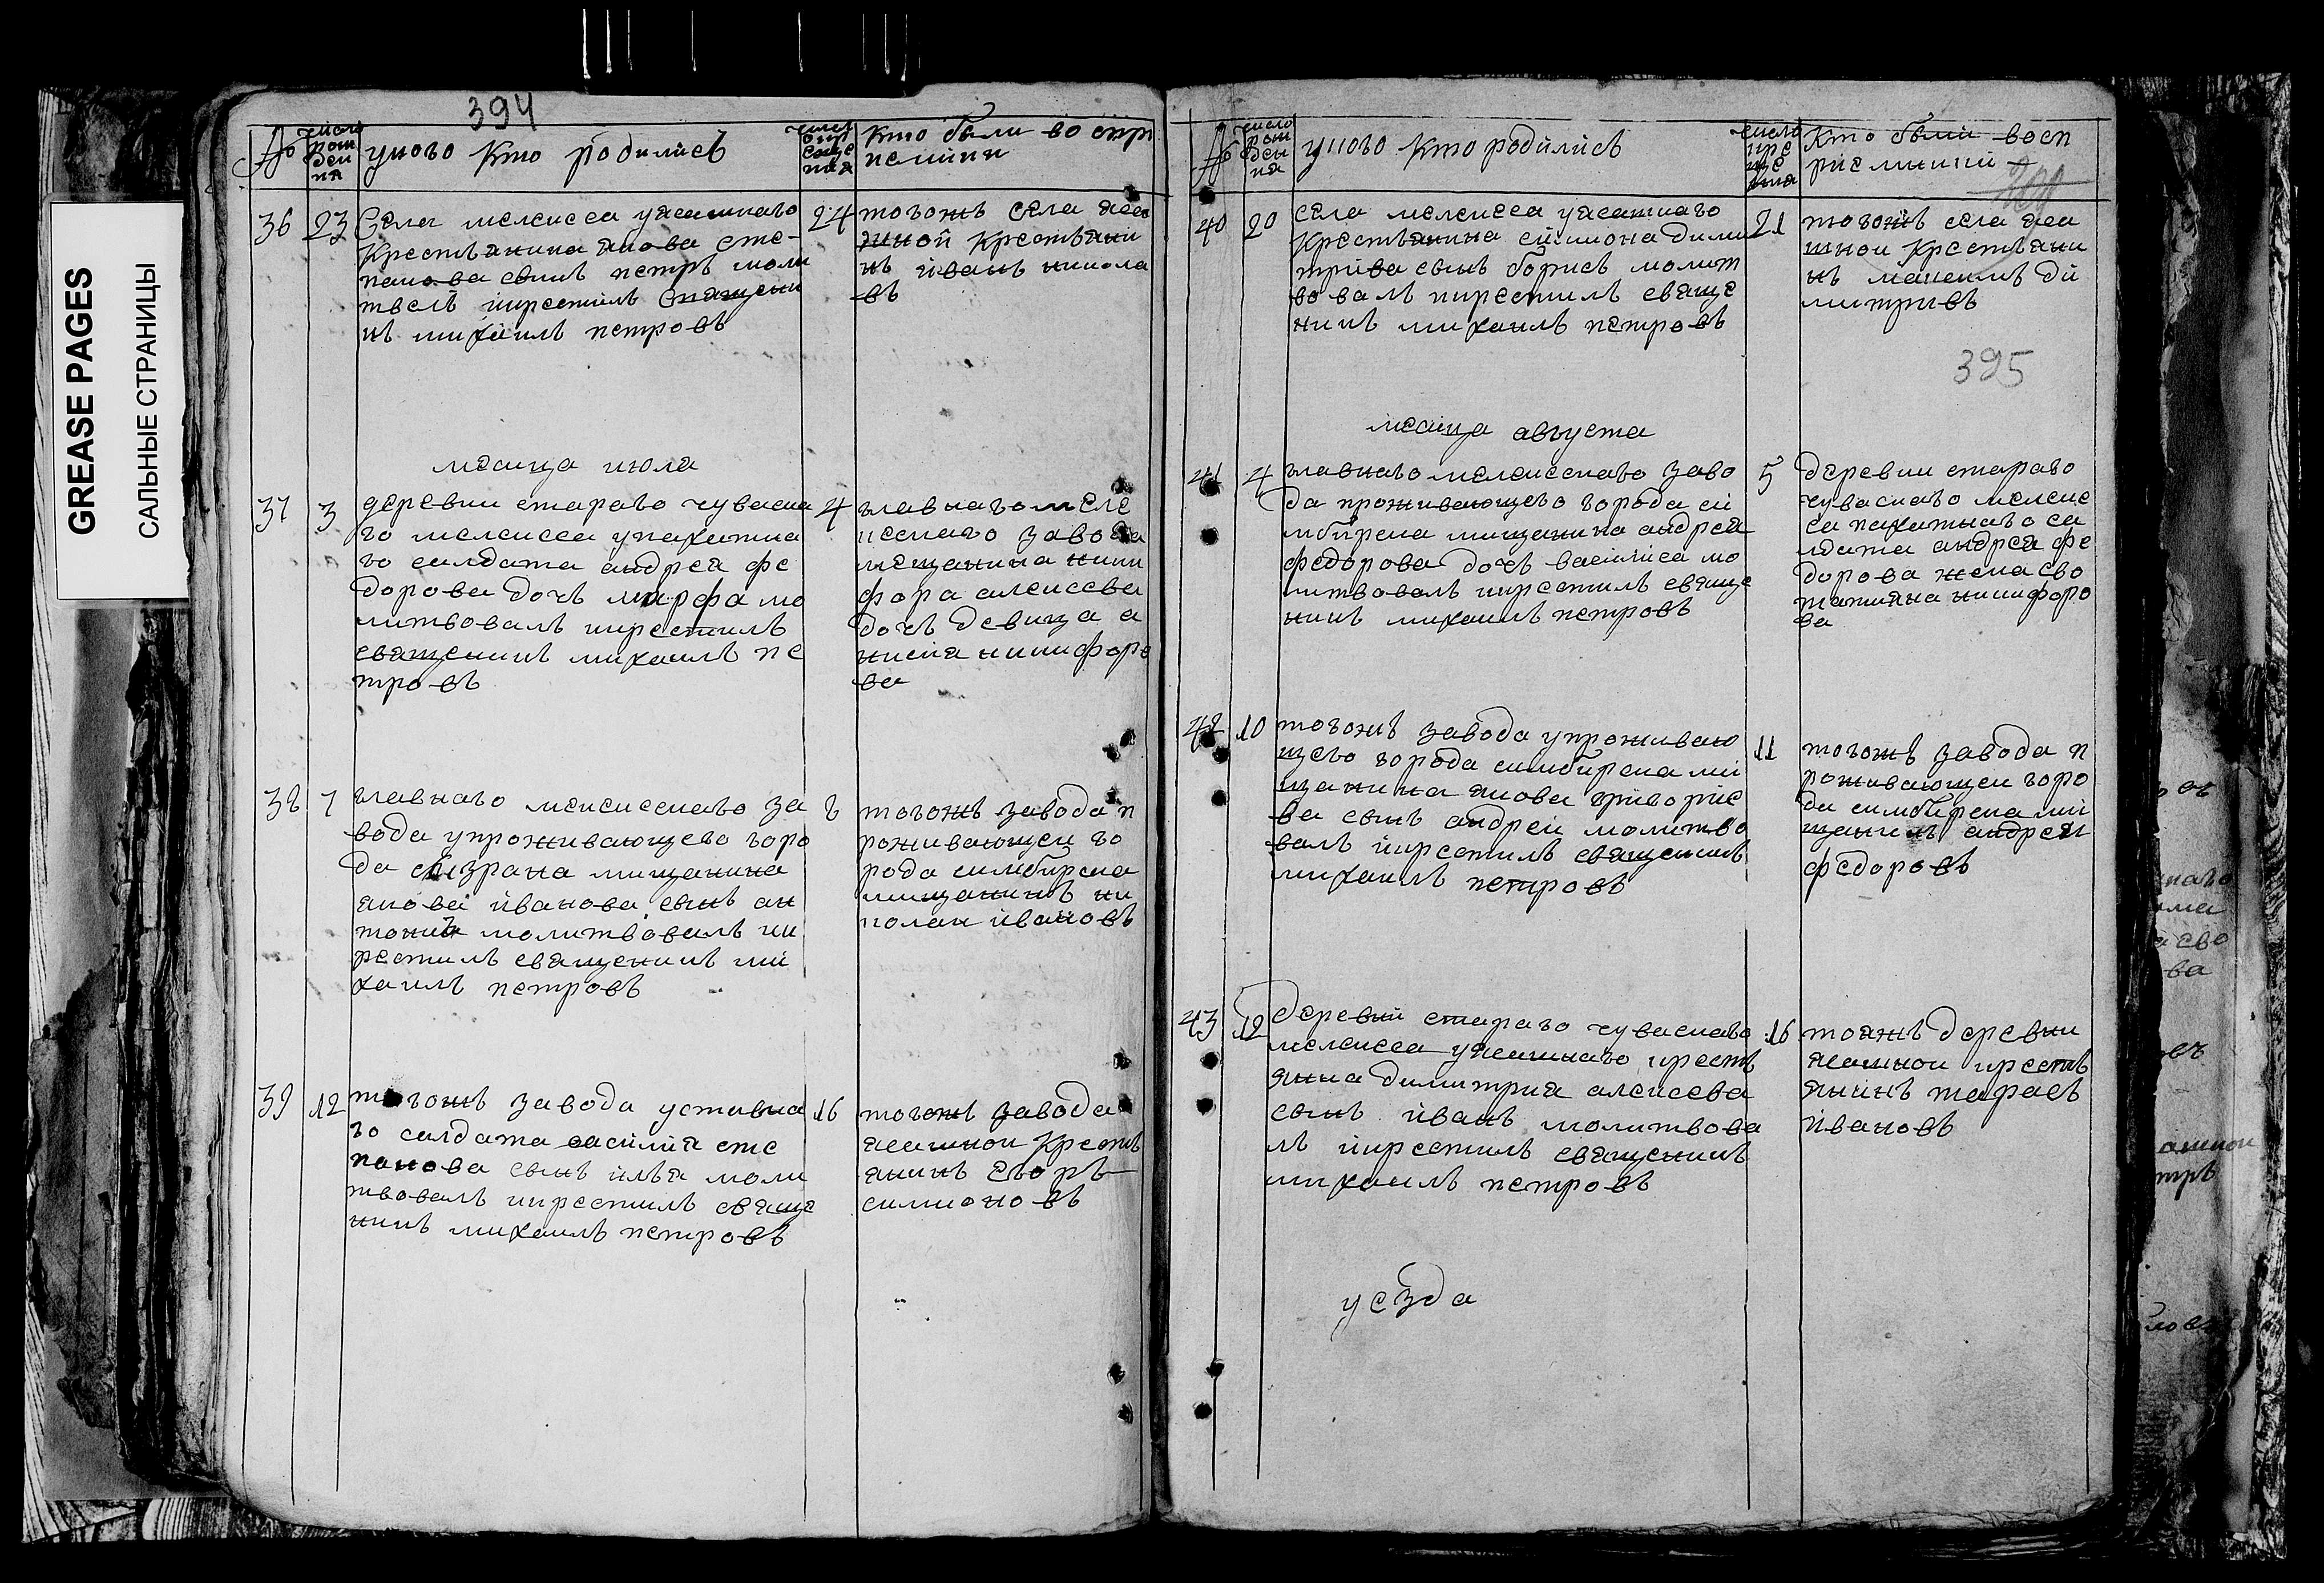 GREASE PAGES
САЛЬНЫЕ СТРАНИЦЫ
394
№
число рождения
укого кто родилис
число
кто были во спри
36
23
Села мелекеса уясашнаго
крестьянина якова сте-
панова сынъ петръ моли
икрестилъ священи
къ михаилъ петровъ
24
тогожъ села яса
шной крестьяни
нъ иванъ никола
въ
месяца июля
37
3
деревни стараго чуваска
го мелекеса упахатна
го салдата андрея фе
дорова дочъ марфа мо
литвовалъ икрестилъ
священикъ михаилъ пе
тровъ
4
главнаго меле
кескаго завода
мещанина ники
фора алексева
дочъ девица а
нисия никифоро
ва
38
7
главнаго мелекескаго за
вода упроживающего горо
да сызрана мищанина
якова иванова сынъ ан
тоний молитвовалъ ик
рестилъ священикъ ми
хаилъ петровъ
8
тогожъ завода п
роживающеи го
рода симбирска
мищанинъ ни
колаи ивановъ
39
12
тогожъ завода уставна
го салдата василия сте
панова сынъ илья моли
твовалъ икрестилъ свяще
никъ михаилъ петровъ
16
тогожъ завода
ясашнои кресть
янинъ егоръ
симионовъ
№
число рождения
укого кто родилис
число
кто были восп
риемники
200
40
20
села мелекеса уясашнаго
крестьянина симиона дими
трива сынъ борисъ молит
вовалъ икрестилъ свяще
никъ михаилъ петровъ
21
тогожъ села яса
шнои крестьяни
нъ максимъ ди
митривъ
395
месяца августа
41
4
главнаго мелекескаго заво
да проживающего города си
мбирска мищанина андрея
федорова дочъ василиса мо
литвовалъ икрестилъ свяще
никъ михаилъ петровъ
5
деревни стараго
чуваскаго мелеке
са пахатнаго са
лдата андрея фе
дорова жена ево
татияна никифоро
ва
42
10
тогожъ завода упроживаю
щего города симбирска ми
щанина якова григорие
ва сынъ андреи молитво
валъ икрестилъ священикъ
михаилъ петровъ
11
тогожъ завода п
роживающеи горо
да симбирска ми
андреи
федоровъ
43
12
деревни стараго чуваскаго
мелекеса уясашнаго кресть
янина димитрия алексева
сынъ иванъ молитвова
лъ икрестилъ священикъ
михаилъ петровъ
16
тояжъ деревни
ясашнои кресть
янинъ тарасъ
ивановъ
уезда